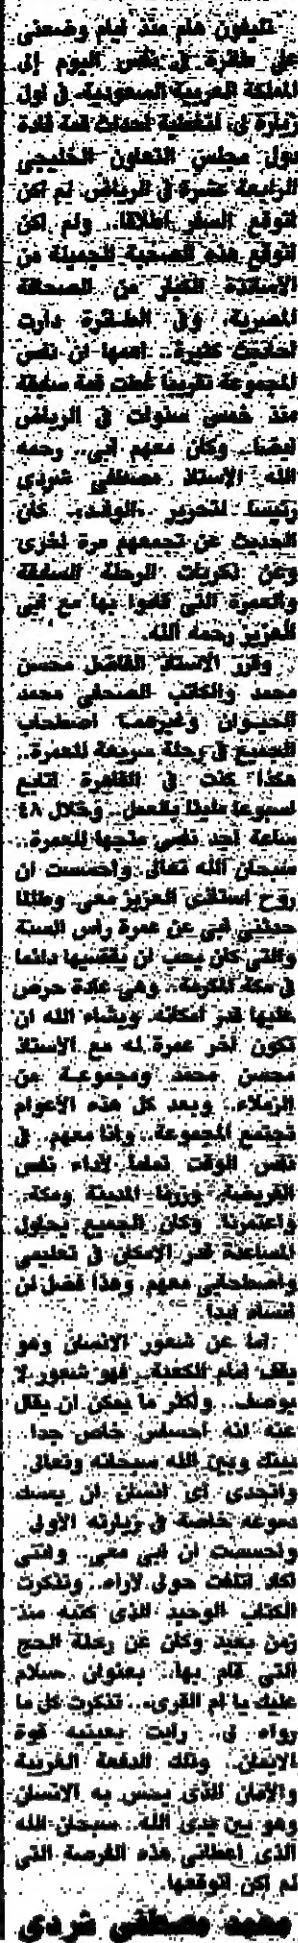 تليفون هام منذ ايام وضعنى
على طائرة فى نفس اليوم إلى
المملكة العربية السعودية فى اول
زيارة لى لتغطية احداث قمة قادة
دول مجلس التعاون الخليجى
الرابعة عشرة فى الرياض لم اكن
اتوقع السفر اطلاقا.. ولم اكن
اتوقع هذه الصحبة الجميلة من
الأساتذة الكبار من الصحافة
المصرية. وفى الطائرة دارت
احاديث كثيرة.. اهمها ان نفس
المجموعة تقريبا غطت قمة سابقة
منذ خمس سنوات فى الرياض
ايضا.. وكان معهم ابى.. رحمه
الله الاستاذ مصطفى شردى
رئيسا لتحرير «الوفد». كان
الحديث عن تجمعهم مرة اخرى
وعن ذكريات الرحلة السابقة
والعمرة التى قاموا بها مع ابى
العزيز رحمه الله.
وقرر الاستاذ الفاضل محسن
محمد والكاتب الصحفى محمد
الحيوان وغيرهما اصطحاب
الجميع فى رحلة سريعة للعمرة..
هكذا كنت فى القاهرة اتابع
اسبوعا مليئا بالعمل.. وخلال ٤٨
ساعة اجد نفسى متجها للعمرة..
سبحان الله تعالى واحسست ان
روح استاذى العزيز معى وطالما
حدثنى ابى عن عمرة راس السنة
والتى كان يحب ان يقضيها دائما
فى مكة المكرمة.. وهى عادة حرص
عليها قدر امكانه ويشاء الله ان
تكون اخر عمرة له مع الاستاذ
محسن محمد ومجموعة من
الزملاء.. وبعد كل هذه الأعوام
تجتمع المجموعة.. وانا معهم فى
نفس الوقت تماما لأداء نفس
الفريضة وزرنا المدينة ومكة.
واعتمرنا وكان الجميع يحاول
المساعدة قدر الإمكان فى تعليمى
واصطحابى معهم وهذا فضل لن
انساه ابدا
اما عن شعور الانسان وهو
يقف امام الكعبة.. فهو شعور لا
يوصف.. واكثر ما يمكن ان يقال
عنه انه احساس خاص جدا..
بينك وبين الله سبحانه وتعالى.
واتحدى اى انسان ان يمسك
دموعه خاصة فى زيارته الأولى
واحسست ان ابى معى.. واننى
اكاد اتلفت حولى لأراه.. وتذكرت
الكتاب الوحيد الذى كتبه منذ
زمن بعيد وكان عن رحلة الحج
التى قام بها.. بعنوان «سلام
عليك يا ام القرى».. تذكرت كل ما
رواه لى.. رايت بعينيه قوة
الايمان.. وتلك الدفعة الغريبة
والأمان الذى يحس به الانسان
وهو بين يدى الله.. سبحان الله
الذى اعطانى هذه الفرصة التى
لم اكن اتوقعها.
محمد مصطفى شردى